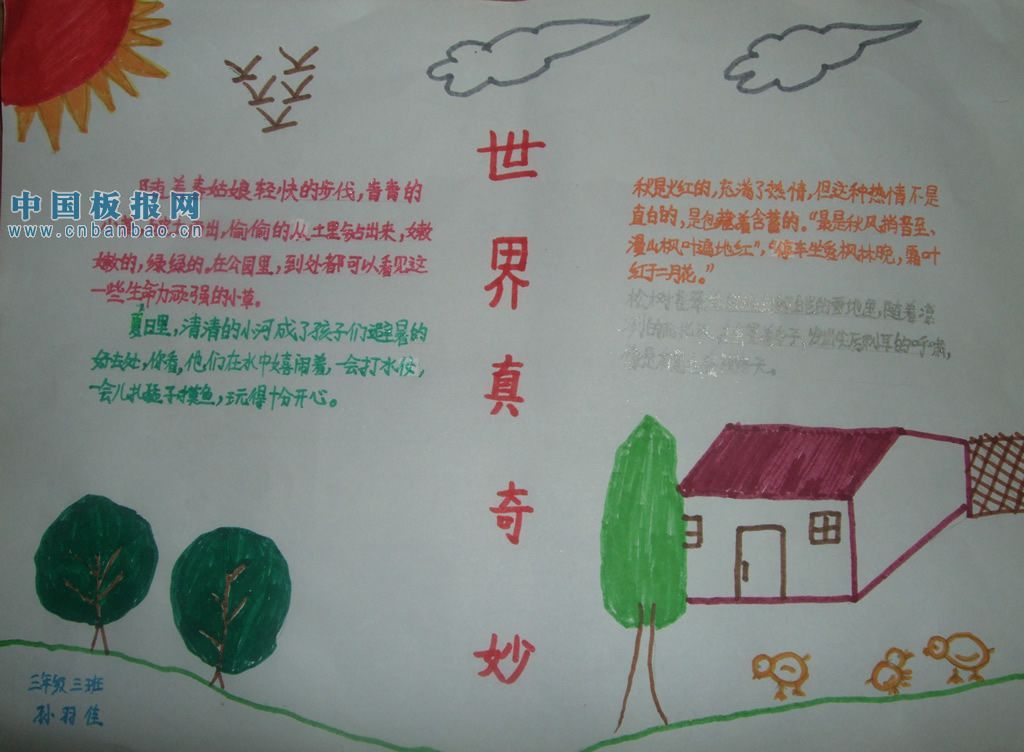 世界真奇妙
随着春姑娘轻快的步伐,青青的
出,偷偷的从土里钻出来,嫩
嫩的,绿绿的。在公园里,到处都可以看见这
一些生命力顽强的小草。
夏日里,清清的小河成了孩子们避暑的
好去处,你看,他们在水中嬉闹着,一会打水仗,
一会儿扎猛子摸鱼,玩得十分开心。
秋是火红的,充满了热情,但这种热情不是
直白的,是包藏着含蓄的。“最是秋风捎音至、
漫山枫叶遍地红”,“停车坐爱枫林晚,霜叶
红于二月花。”
松树直翠的雪地里,随着凛
冽的
天。
三年级三班
孙羽佳
中国板报网
www.cnbanbao.cn